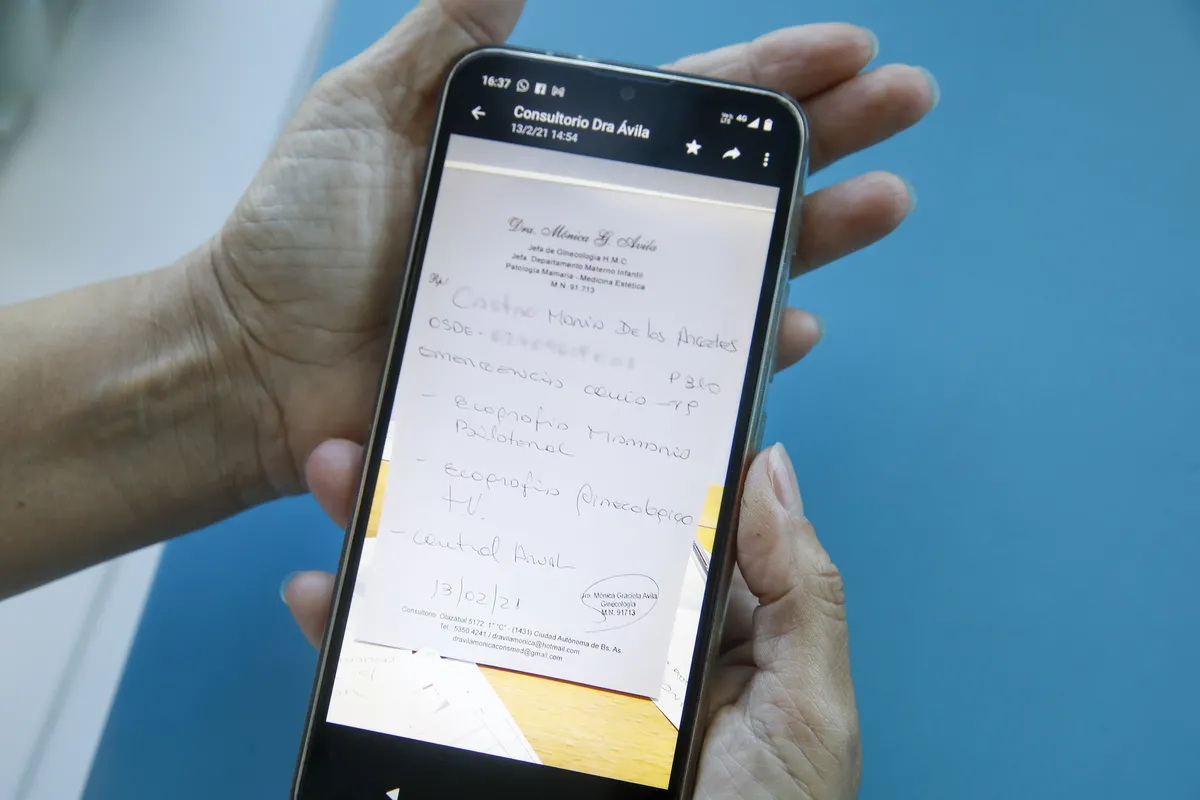 16:37
4G
Consultorio Dra Ávila
13/2/21 14:54
Dra. Mónica G. Avila
Jefa de Ginecología H.M.C
Jefa Departamento Materno Infantil
Patología Mamaria - Medicina Estética
M.N. 91.713
Rp/
Castro Maria De los Angeles
OSDE -
P310
emergencia covid 19
- Ecografia Mamaria
Bilateral
- Ecografia ginecologica
TV.
- control Anual
13/02/21
Dra. Mónica Graciela Avila
Ginecología
M.N. 91713
Consultorio: Olazábal 5172 1° "C" - (1431) Ciudad Autónoma de Bs. As.
Tel.: 5350 4241 / dravilamonica@hotmail.com
dravilamonicaconsmed@gmail.com